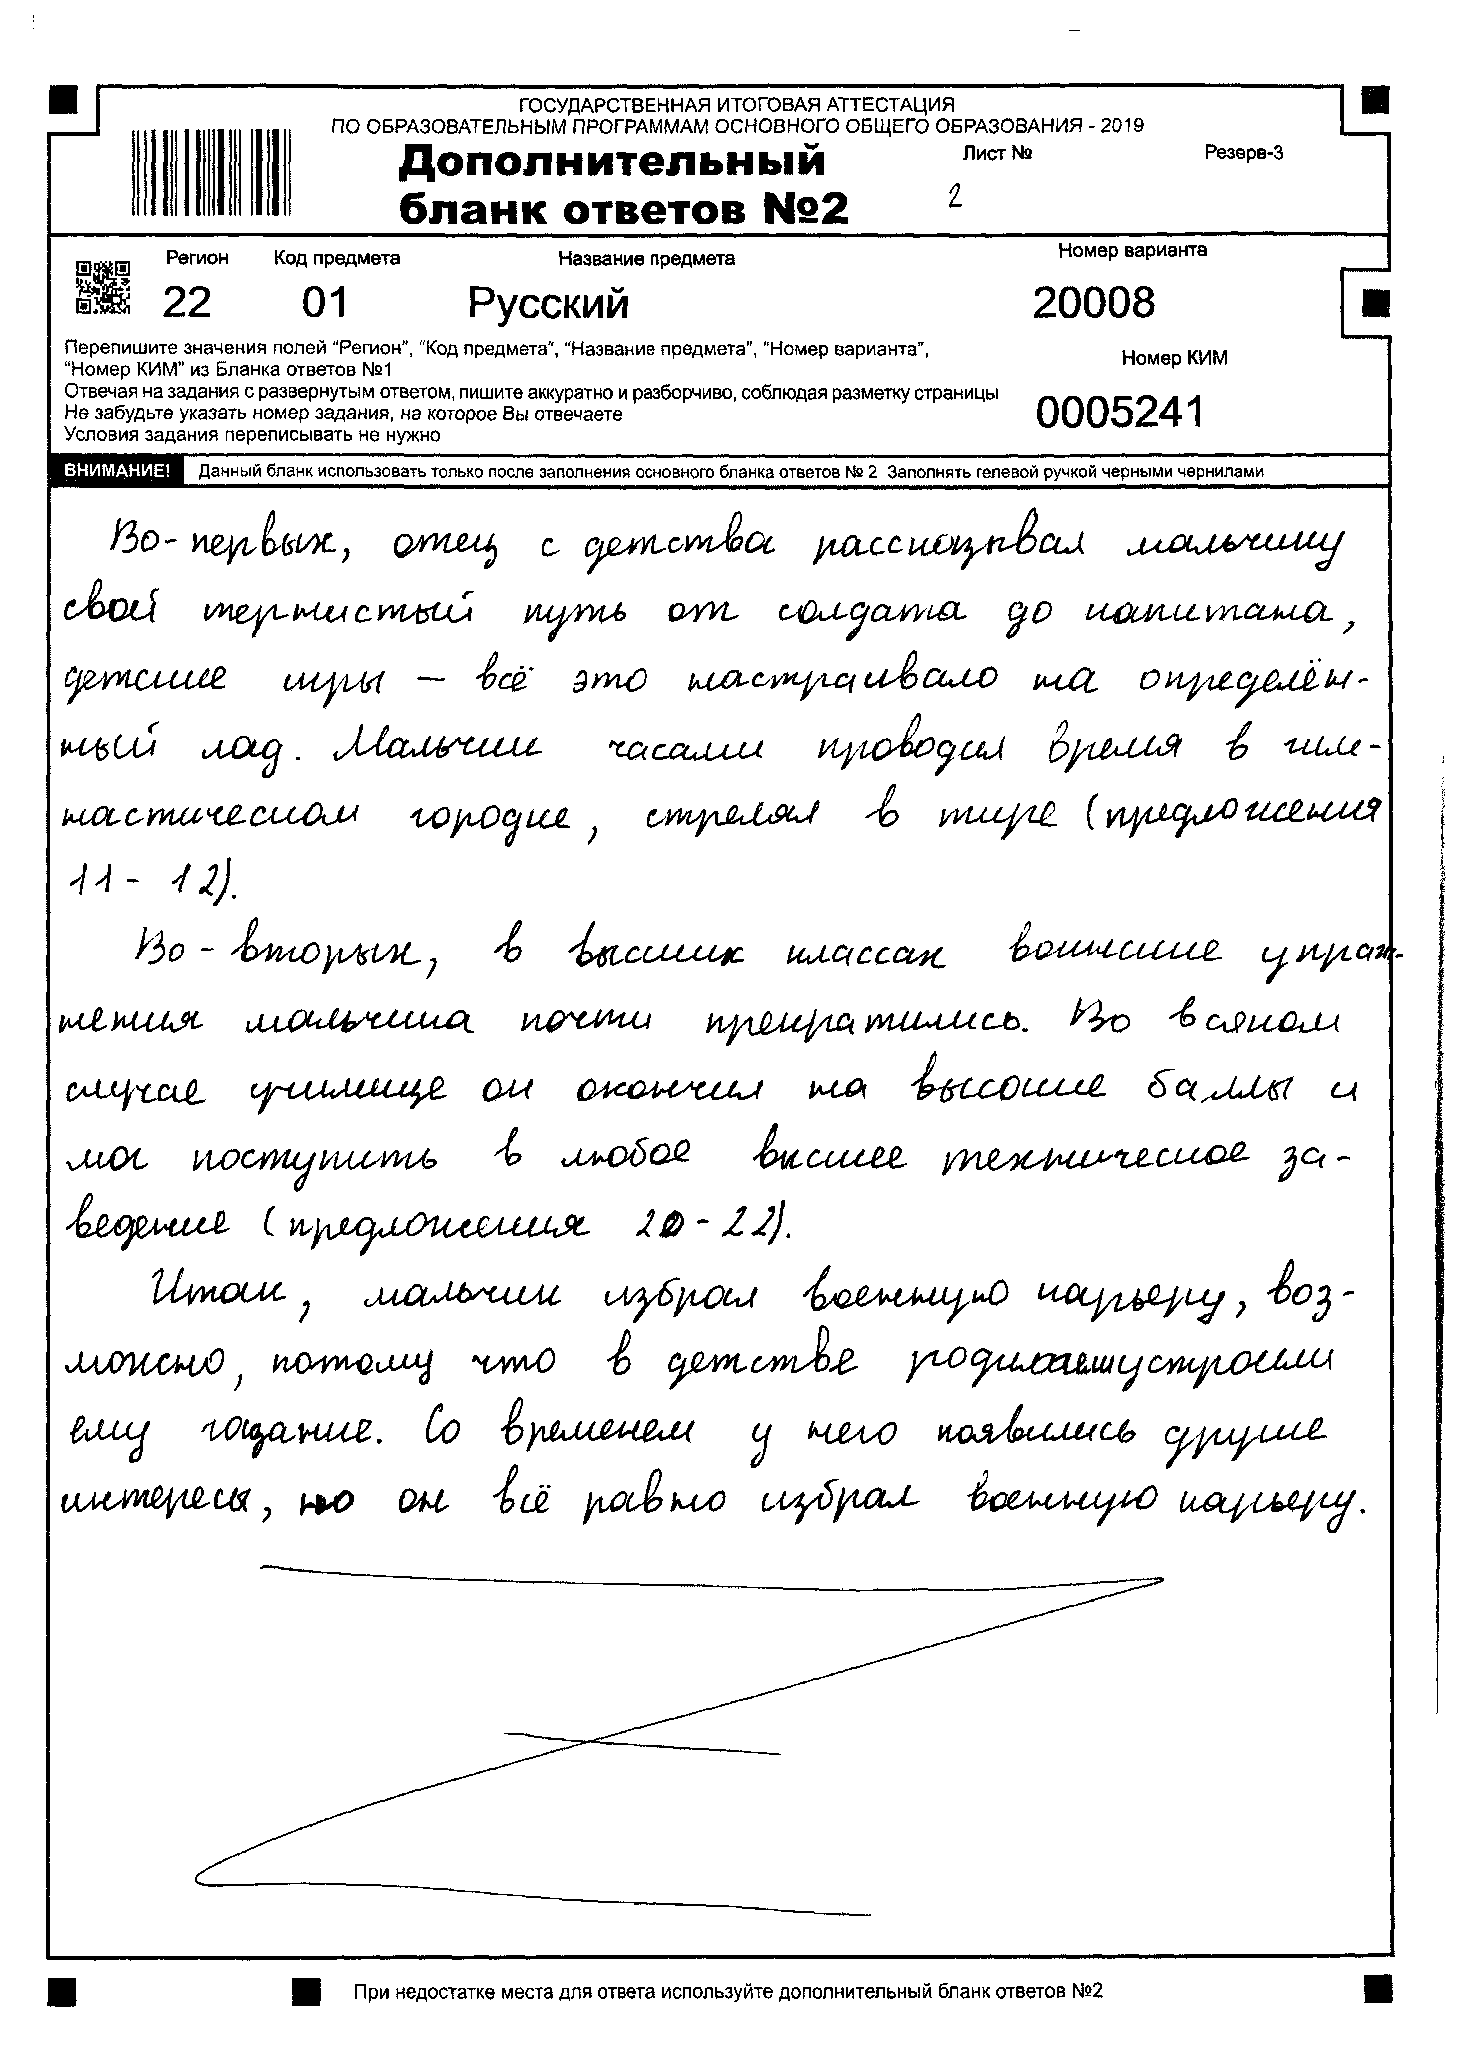 ГОСУДАРСТВЕННАЯ ИТОГОВАЯ АТТЕСТАЦИЯ
ПО ОБРАЗОВАТЕЛЬНЫМ ПРОГРАММАМ ОСНОВНОГО ОБЩЕГО ОБРАЗОВАНИЯ - 2019
Дополнительный
бланк ответов №2
Лист №
2
Резерв-3
Регион
22
Код предмета
01
Название предмета
Русский
Номер варианта
20008
Перепишите значения полей "Регион", "Код предмета", "Название предмета", "Номер варианта",
"Номер КИМ" из Бланка ответов №1
Отвечая на задания с развернутым ответом, пишите аккуратно и разборчиво, соблюдая разметку страницы
Не забудьте указать номер задания, на которое Вы отвечаете
Условия задания переписывать не нужно
Номер КИМ
0005241
ВНИМАНИЕ!
Данный бланк использовать только после заполнения основного бланка ответов № 2 Заполнять гелевой ручкой черными чернилами
Во-первых, отец с детства рассказывал мальчику
свой тернистый путь от солдата до капитана,
детские игры — всё это настраивало на определён-
ный лад. Мальчик часами проводил время в гим-
настическом городке, стрелял в тире (предложения
11- 12).
Во-вторых, в высших классах воинские упраж-
нения мальчика почти прекратились. Во всяком
случае училище он окончил на высокие баллы и
мог поступить в любое высшее техническое за-
ведение (предложения 20-22).
Итак, мальчик избрал военную карьеру, воз-
можно, потому что в детстве родители устроили
ему гадание. Со временем у него появились другие
интересы, но он всё равно избрал военную карьеру.
При недостатке места для ответа используйте дополнительный бланк ответов №2